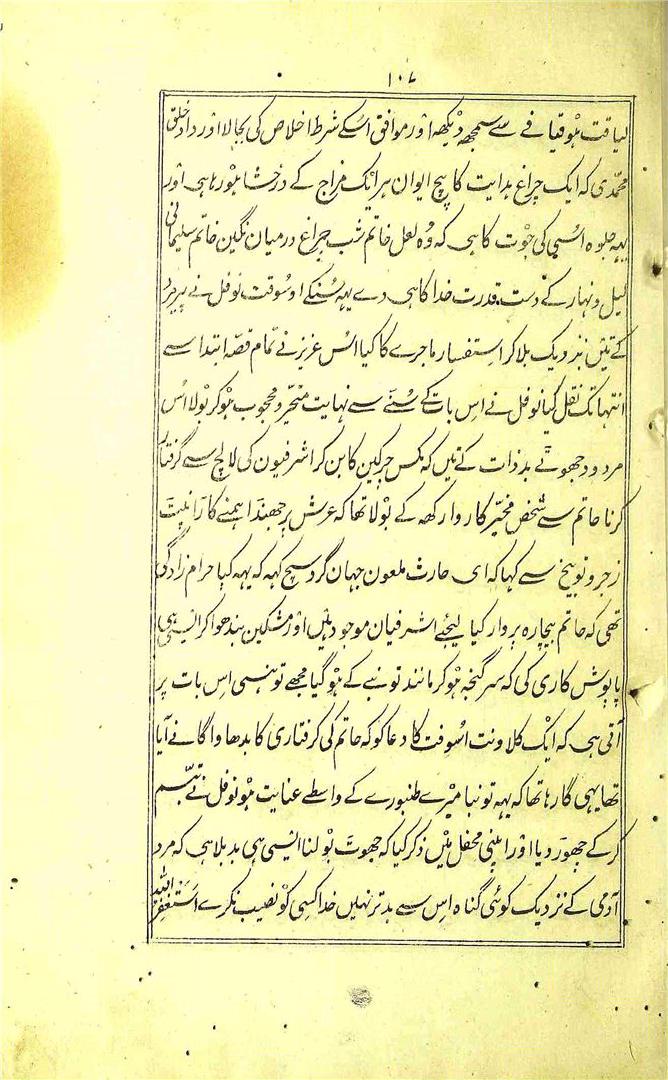 ١٠٧
لیاقت ہو قیافے سے سمجھ دیکھہ اور موافق اسکے شرط اخلاص کی بجالا اور داد خلق
محمّدی کہ ایک چراغ ہدایت کا بیچ ایوان ہر ایک مزاج کے درخشا ہو رہا ہی اور
یہہ جلوہ اُسی کی جوت کا ہی کہ وُہ لعل خاتم شب چراغ درمیان نگین خاتم سلیمانی
لیل و نہار کے دست قدرت خدا کا ہی دے یہہ سُنکے اوسوقت نوفل نے پیر مرد
کے تئیں نزدیک بلا کر استفسار ماجرے کا کیا اُس عزیز نے تمام قصّہ ابتدا سے
انتہا تک نقل کیا نوفل نے اس بات کے سُنّے سے نہایت متحیّر و محجوب ہو کر بولا اُس
مردود جھوٹے بدذات کے تئیں کہ مکس چرکین کا بن کر اشرفیون کی لالچ سے گرفتار
کرنا حاتم سے شخص مخیّر کا روا رکھہ کے بولا تھا کہ عرش پر جھنڈا ہمنے گاڑا نپٹ
زجر و توبیخ سے کہا کہ ای حارث ملعون جہان گرد سچ کہہ کہ یہہ کیا حرام زادگی
تھی کہ حاتم بیچارہ پر وار کیا لیجئے اشرفیان موجود ہین اور مشکین بندھوا کر ایسی ہی
پاپوش کاری کی کہ سر گنجہ ہو کر مانند تونبے کے ہو گیا مجھے تو ہنسی اس بات پر
آتی ہی کہ ایک کلاونت اُسوقت کا دعا گو کہ حاتم کی گرفتاری کا بدھاوا گانے آیا
تھا یہی گا رہا تھا کہ یہہ تونبا میرے طنبورے کے واسطے عنایت ہو نوفل نے تبسّم
کر کے چھوڑ دیا اور اپنی محفل مین ذکر کیا کہ جھوٹ بولنا ایسی ہی بد بلا ہی کہ مرد
آدمی کے نزدیک کوئی گناہ اس سے بدتر نہین خدا کسی کو نصیب نکرے استغفر اللہ